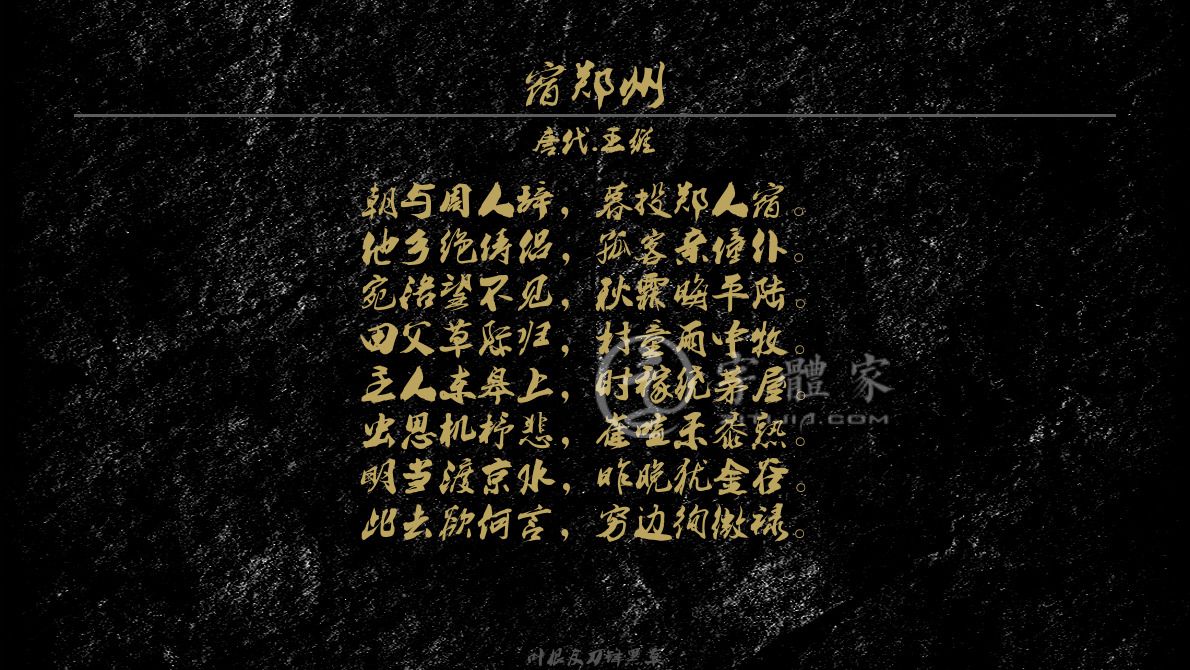 宿郑州
唐代.王维
朝与周人辞，暮投郑人宿。
他乡绝俦侣，孤客亲僮仆。
宛洛望不见，秋霖晦平陆。
田父草际归，村童雨中牧。
主人东皋上，时稼绕茅屋。
虫思机杼悲，雀喧禾黍熟。
明当渡京水，昨晚犹金谷。
此去欲何言，穷边徇微禄。
字體家
ZITIJIA.COM
叶根友刀锋黑草